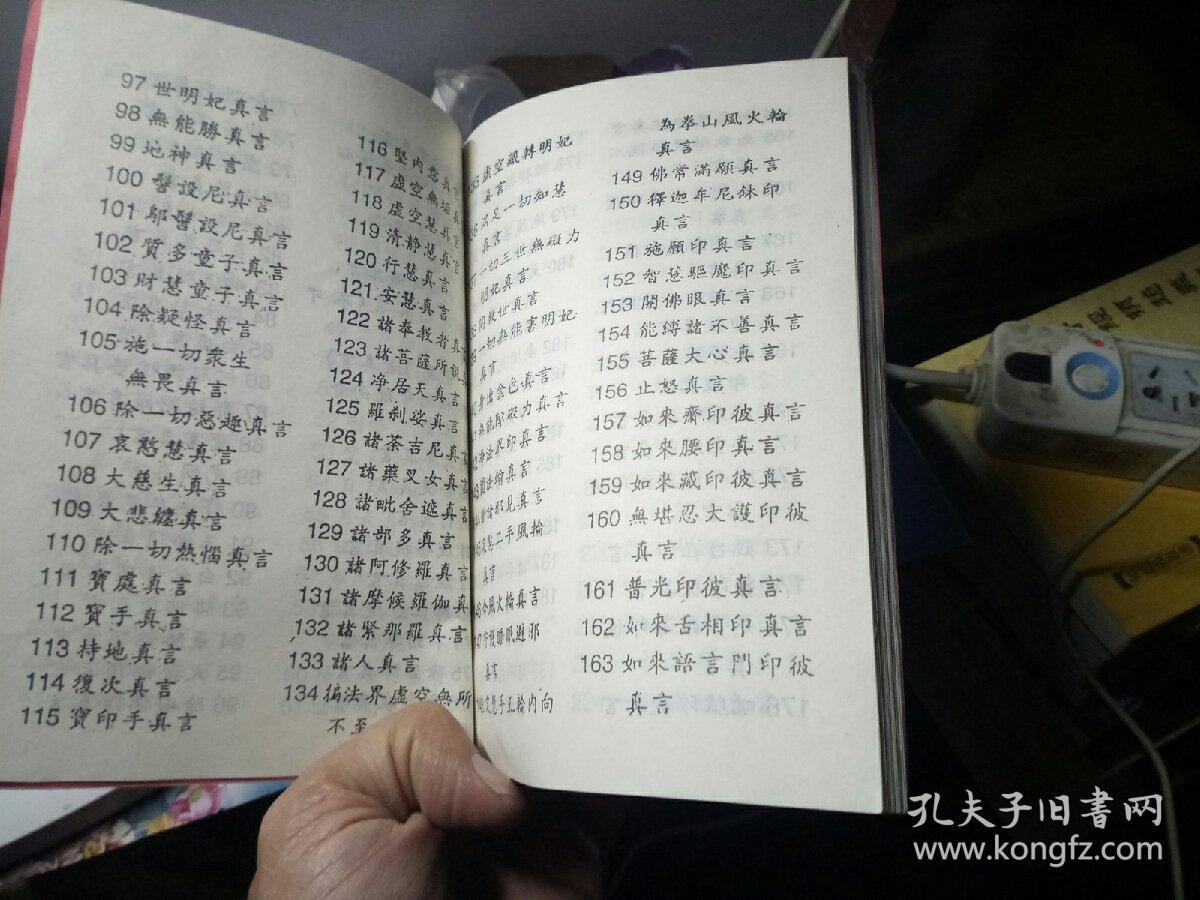 97 世明妃真言
98 無能勝真言
99 地神真言
100 髻設尼真言
101 鄔髻設尼真言
102 質多童子真言
103 財慧童子真言
104 除疑怪真言
105 施一切衆生
無畏真言
106 除一切惡趣真言
107 哀愍慧真言
108 大慈生真言
109 大悲纏真言
110 除一切熱惱真言
111 寶處真言
112 寶手真言
113 持地真言
114 復次真言
115 寶印手真言
116 堅内意真言
117 虛空無垢真
118 虛空慧真言
119 清静慧真言
120 行慧真言
121 安慧真言
122 諸奉教者真
123 諸菩薩所説
124 净居天真言
125 羅刹娑真言
126 諸荼吉尼真言
127 諸藥叉女真
128 諸毗舍遮真言
129 諸部多真言
130 諸阿修羅真言
131 諸摩候羅伽真
132 諸緊那羅真言
133 諸人真言
134 徧法界虛空無所
不至
虛空藏轉明妃
真言
足一切知慧
真言
一切三世無礙力
明妃真言
救世真言
一切無能害明妃
真言
身出金色真言
無能障礙力真言
法界印真言
真言
諸邪見真言
慧二手風輪
真言
令風火輪真言
睡眠避邪
真言
慧手五輪内向
為拳山風火輪
真言
149 佛常滿願真言
150 釋迦牟尼鉢印
真言
151 施願印真言
152 智慧驅魔印真言
153 開佛眼真言
154 能縛諸不善真言
155 菩薩大心真言
156 止怒真言
157 如來齋印彼真言
158 如來腰印真言
159 如來藏印彼真言
160 無堪忍大護印彼
真言
161 普光印彼真言
162 如來舌相印真言
163 如來語言門印彼
真言
孔夫子旧書网
www.kongfz.com